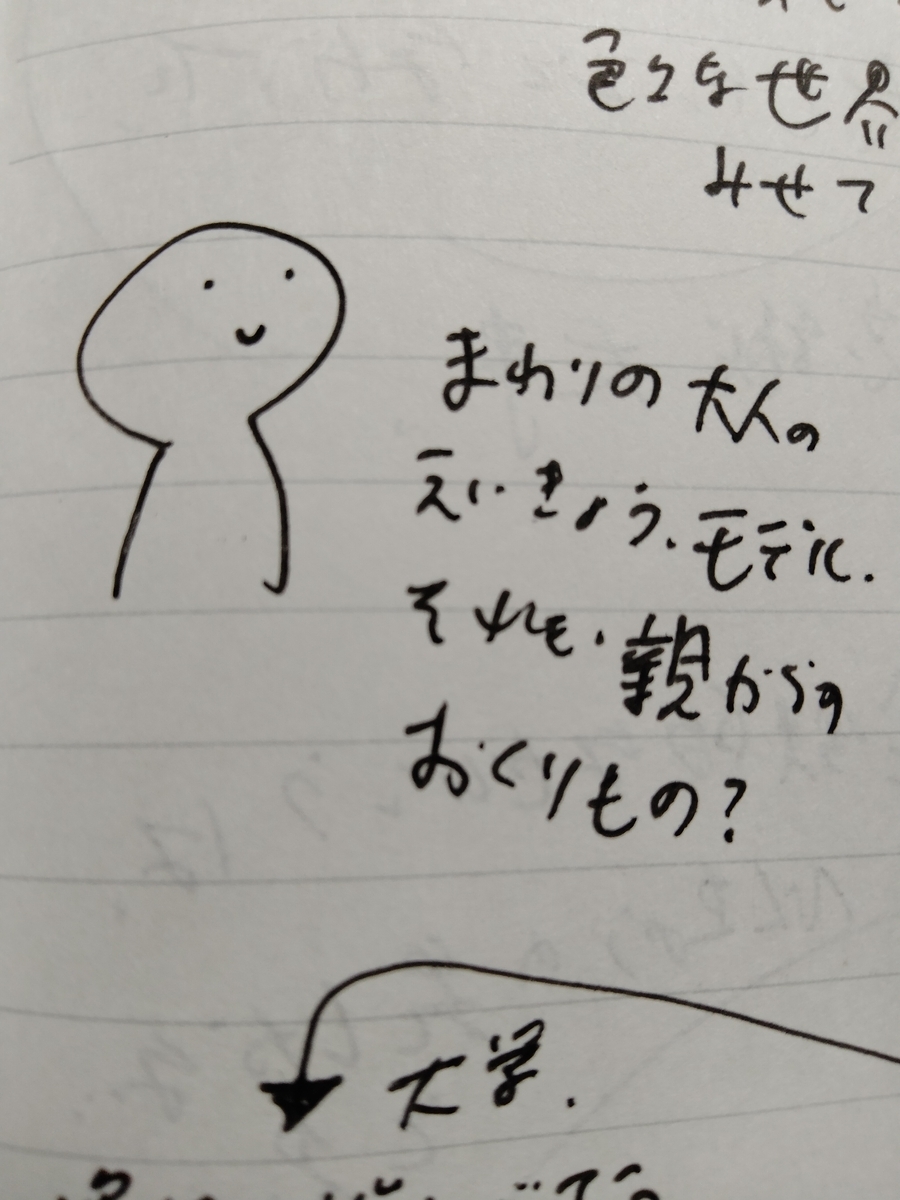 色々な世界
みせて
まわりの大人の
えいきょう、モデル.
それも、親からの
おくりもの?
大学.